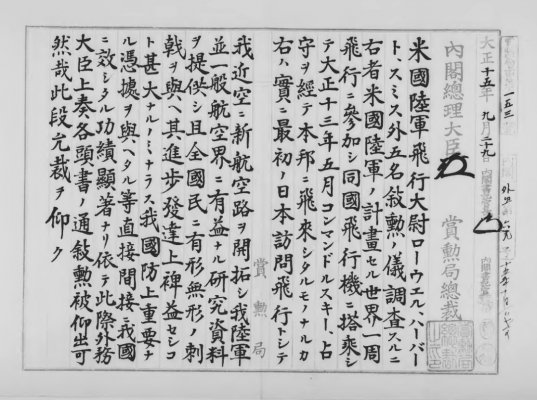 一五三
大正十五年九月二十九日
內閣總理大臣
賞勲局總裁
米國陸軍飛行大尉ローウエル、ハーバー
ト、スミス外五名敍勲ノ儀調査スルニ
右者米國陸軍ノ計畫セル世界一周
飛行ニ參加シ同國飛行機ニ搭乘シ
テ大正十三年五月コマンドルスキー、占
守ヲ經テ本邦ニ飛來シタルモノナルカ
右ハ實ニ最初ノ日本訪問飛行トシテ
賞勲局
我近空ニ新航空路ヲ開拓シ我陸軍
並一般航空界ニ有益ナル研究資料
ヲ提供シ且全國民ニ有形無形ノ刺
戟ヲ與ヘ其進步發達上裨益セシコ
ト甚大ナルノミナラス我國防上重要ナ
ル憑據ヲ與ヘタル等直接間接ニ我國
ニ效シタル功績顯著ナリ依テ此際外務
大臣上奏各頭書ノ通敍勲被仰出可
然哉此段允裁ヲ仰ク